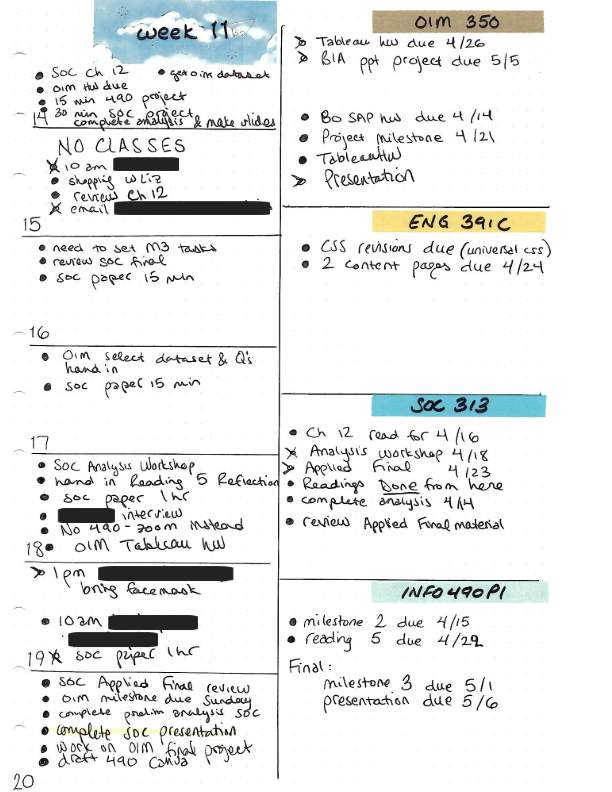 week 11
• Soc Ch 12 • get oim dataset
• OIM HW due
• 15 min 490 project
• 30 min soc project
14 complete analysis & make slides
NO CLASSES
x 10 am
• shopping w Liz
• review Ch 12
x email
15
• need to set M3 tasks
• review soc final
• soc paper 15 min
16
• OIM select dataset & Q's
hand in
• soc paper 15 min
17
• SOC Analysis Workshop
• hand in Reading 5 Reflection
• soc paper 1 hr
• interview
• No 490 - zoom instead
18 • OIM Tableau HW
> 1 pm
bring facemask
• 10 am
19 x soc paper 1 hr
• SOC Applied Final review
• OIM milestone due Sunday
• complete prelim analysis SOC
• complete soc presentation
• work on OIM final project
• draft 490 Canva
20
OIM 350
> Tableau hw due 4/26
> BIA ppt project due 5/5
• BO SAP hw due 4/14
• Project milestone 4/21
• Tableau HW
> Presentation
ENG 391C
• CSS revisions due (universal css)
• 2 content pages due 4/24
SOC 313
• Ch 12 read for 4/16
x Analysis Workshop 4/18
> Applied Final 4/23
• Readings Done from here
• complete analysis 4/14
• review Applied Final material
INFO490PI
• milestone 2 due 4/15
• reading 5 due 4/22
Final:
milestone 3 due 5/1
presentation due 5/6